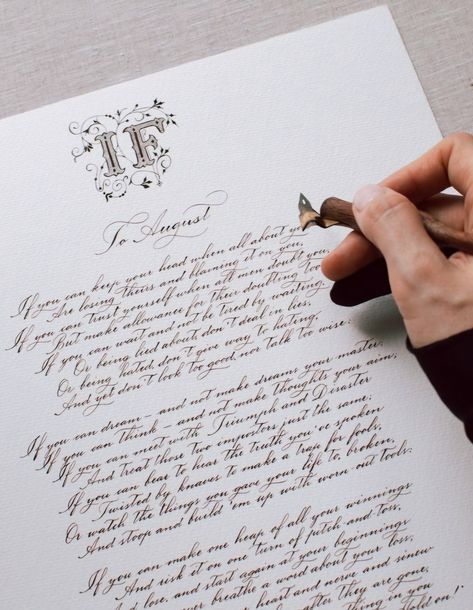 IF
To August
If you can keep your head when all about yo
Are losing theirs and blaming it on you,
If you can trust yourself when all men doubt you,
But make allowance for their doubting too
If you can wait and not be tired by waiting,
Or being lied about, don't deal in lies,
Or being hated, don't give way to hating,
And yet don't look too good, nor talk too wise:
If you can dream – and not make dreams your master;
If you can think – and not make thoughts your aim;
If you can meet with Triumph and Disaster
And treat those two impostors just the same;
If you can bear to hear the truth you've spoken
Twisted by knaves to make a trap for fools,
Or watch the things you gave your life to, broken,
And stoop and build 'em up with worn-out tools:
If you can make one heap of all your winnings
And risk it on one turn of pitch-and-toss,
And lose, and start again at your beginnings
never breathe a word about your loss;
heart and nerve and sinew
after they are gone,
in you
on!'